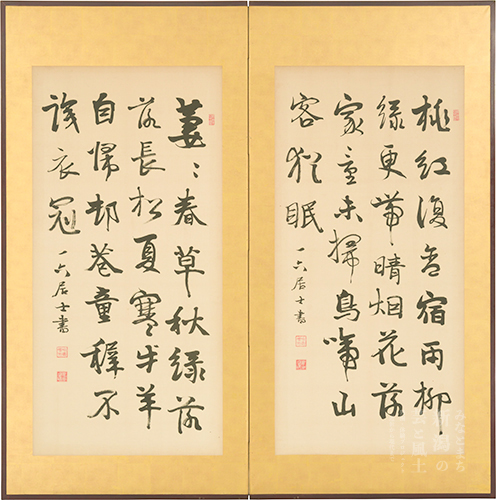 桃紅復含宿雨柳
緑更帯晴烟花落
家童未掃鳥啼山
客猶眠
一六居士書
萋〻春草秋緑落
落長松夏寒牛羊
自帰村巷童稚不
識衣冠
一六居士書
みなとまち